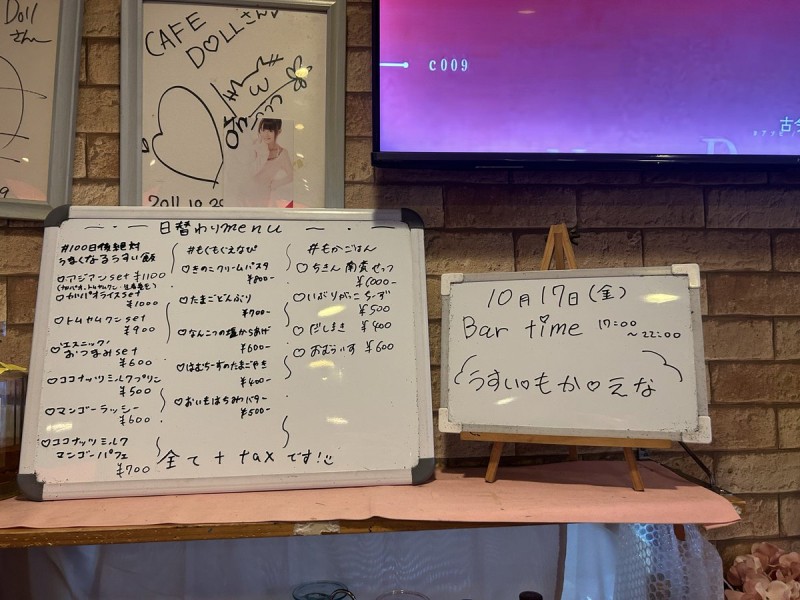 Doll
さんへ
CAFE
DOLLさん
2011.10.29
C009
古今
日替わりmenu
#100日後絶対
うまくなるうすい飯
♡アジアンset ¥1100
♡ガパオライスset
¥1000
♡トムヤムクンset
¥900
♡エスニック
おつまみset
¥600
♡ココナッツミルクプリン
¥500
♡マンゴーラッシー
¥600
♡ココナッツミルク
マンゴーパフェ
¥700
#もぐもぐえなぴ
♡きのこクリームパスタ
¥800-
♡たまごどんぶり
¥700-
♡なんこつの塩からあげ
¥600-
♡はむちーずのたまごやき
¥400-
♡おいもはちみつバター
¥500-
#もかごはん
♡ちきん南蛮せっつ
¥1000-
♡いぶりがっこちーず
¥500
♡だしまき ¥400
♡おむらいす ¥600
全て+taxです!
10月17日(金)
Bar time 17:00
~22:00
うすい♡もか♡えな